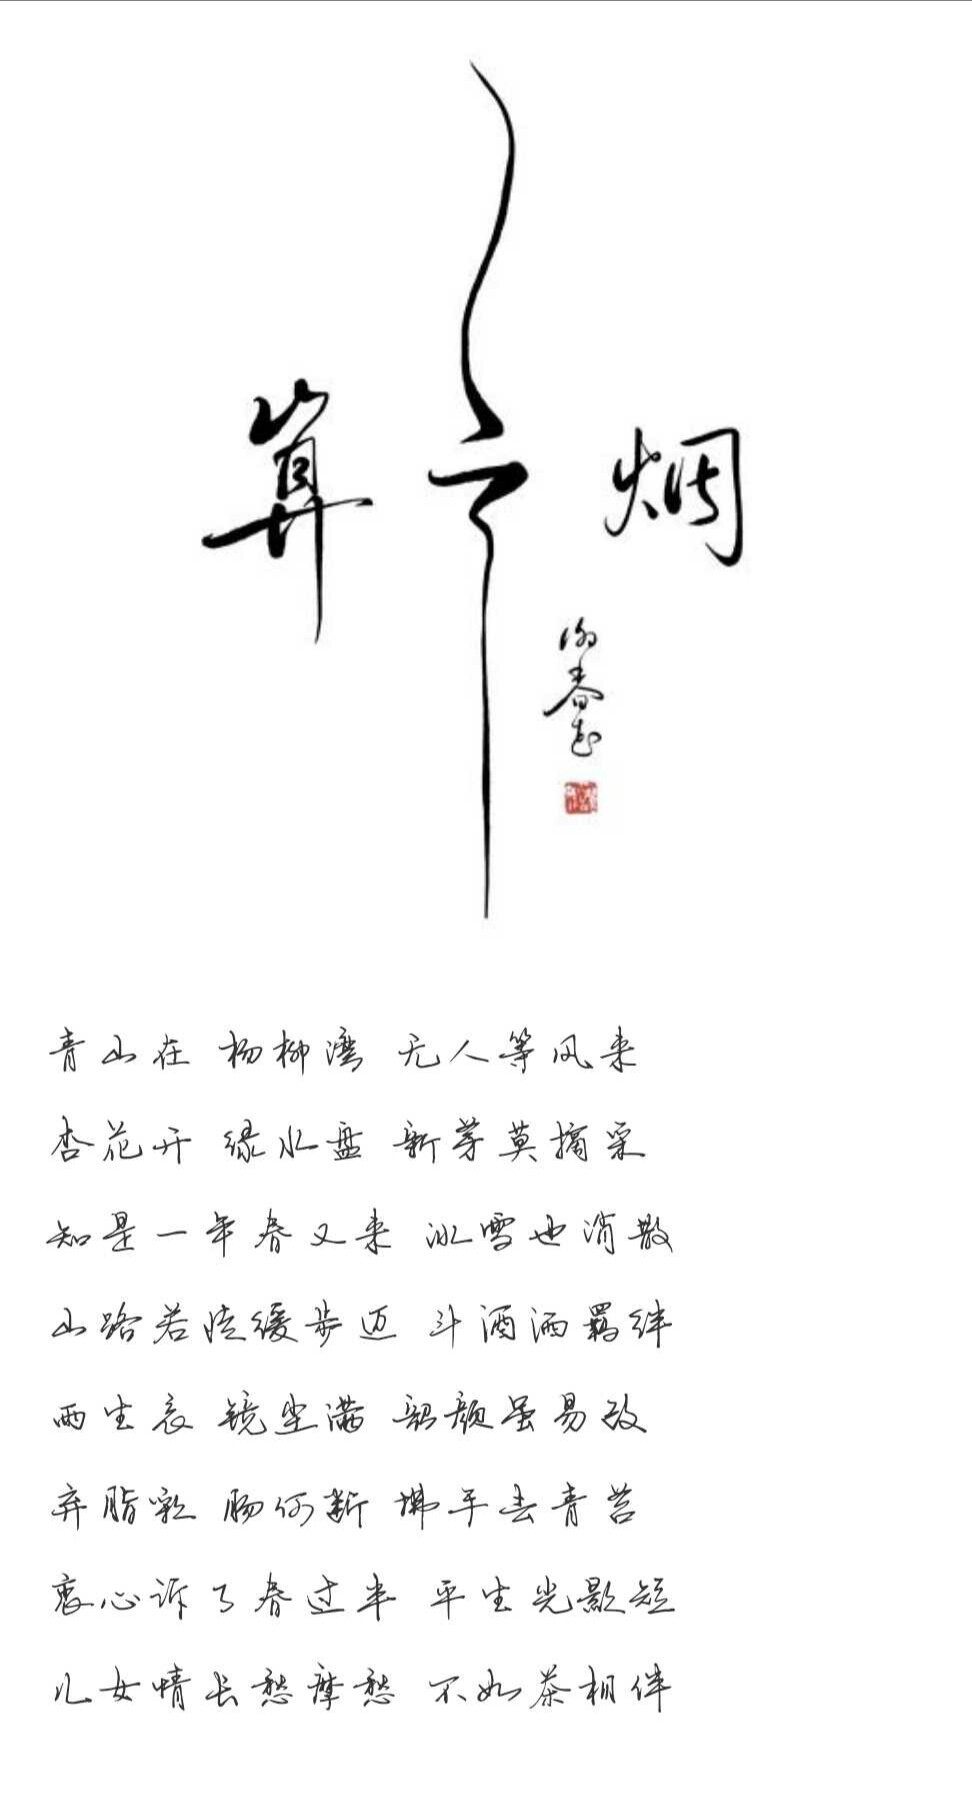 算云烟
谢春花
青山在 杨柳湾 无人等风来
杏花开 绿水盘 新芽莫摘采
知是一年春又来 冰雪也消散
山路若 缓步迈 斗酒洒羁绊
镜尘满 韶颜虽易改
肠何断 拂手去青苔
衷心诉了春过半 平生光影短
儿女情长愁摩愁 不如茶相伴